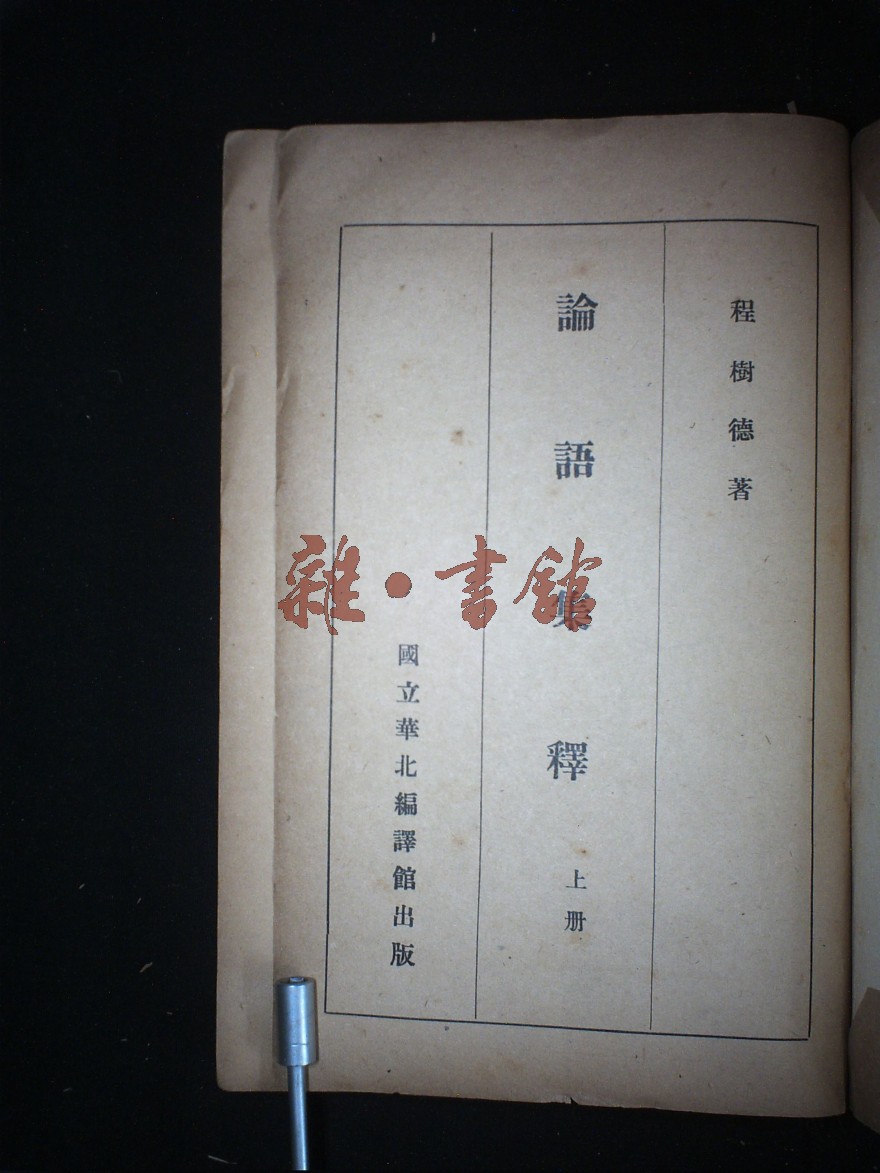 程樹德著
論語集釋 上册
國立華北編譯館出版
雜·書館